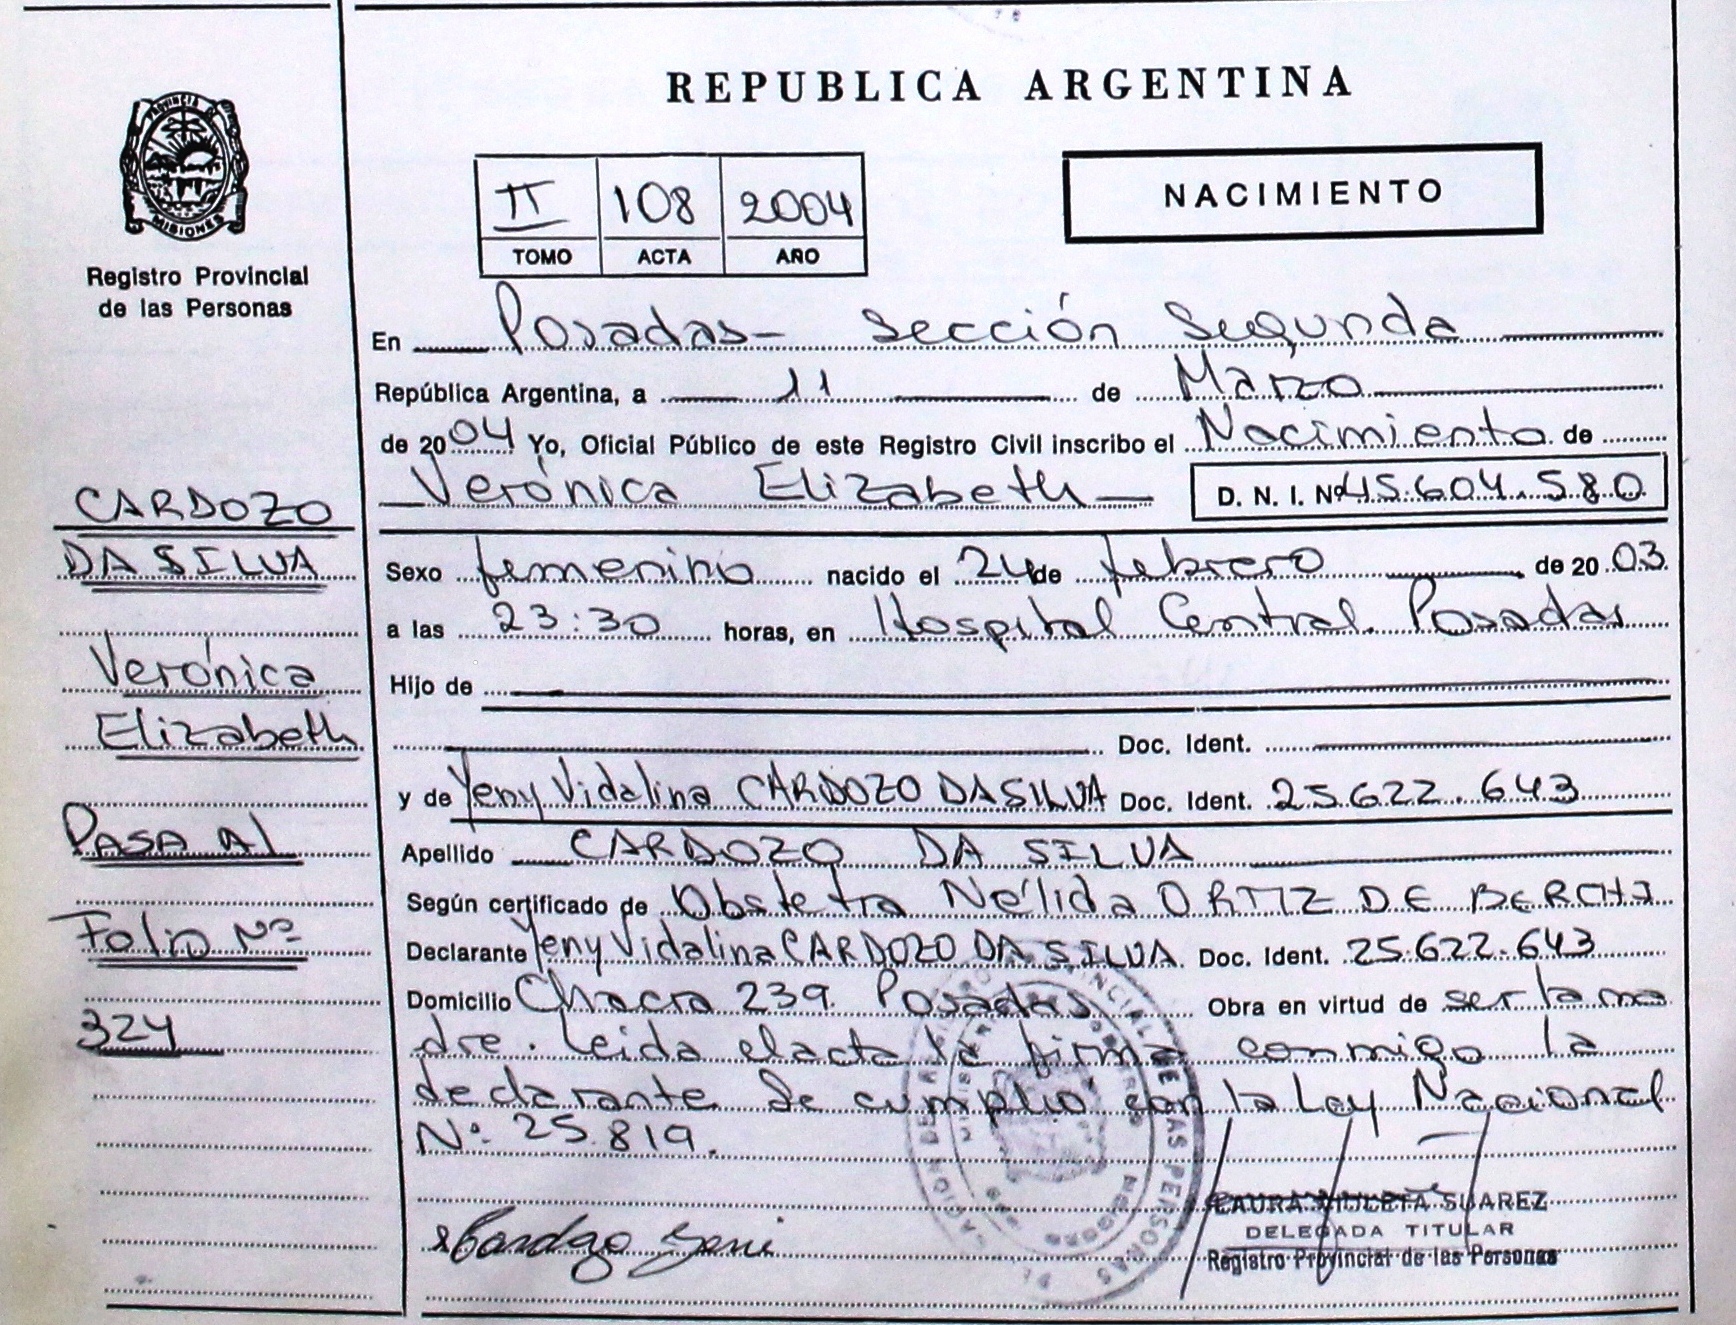 REPUBLICA ARGENTINA
PROVINCIA
MISIONES
Registro Provincial
de las Personas
II 108 2004
TOMO ACTA AÑO
NACIMIENTO
En Posadas - Sección Segunda
República Argentina, a 11 de Marzo
de 2004 Yo, Oficial Público de este Registro Civil inscribo el Nacimiento de
Verónica Elizabeth D. N. I. Nº 45.604.580
Sexo femenino nacido el 24 de febrero de 2003
a las 23:30 horas, en Hospital Central. Posadas
Hijo de
Doc. Ident.
y de Yeny Vidalina CARDOZO DA SILVA Doc. Ident. 25.622.643
Apellido CARDOZO DA SILVA
Según certificado de Obstetra Nélida ORTIZ DE
Declarante Yeny Vidalina CARDOZO DA SILVA Doc. Ident. 25.622.643
Domicilio Chacra 239. Posadas Obra en virtud de ser la ma
dre. Leida el acta la firma conmigo la
declarante Se cumplio con la Ley Nacional
Nº 25.819.
CARDOZO
DA SILVA
Verónica
Elizabeth
PASA Al
Folio Nº
324
Cardozo Yeni
LAURA SUAREZ
DELEGADA TITULAR
Registro Provincial de las Personas
DE LAS PERSONAS